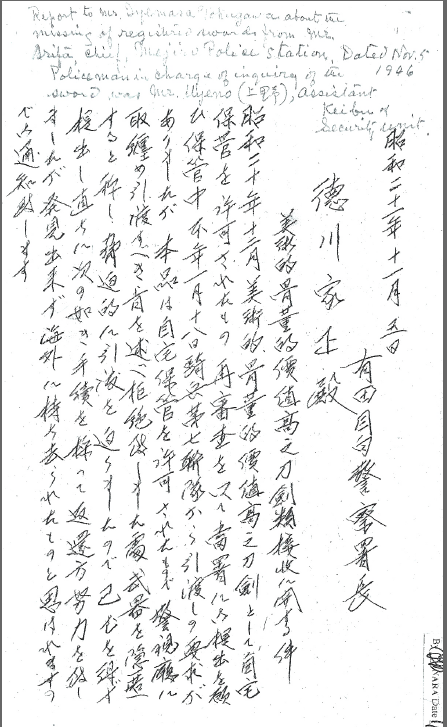 Report to Mr. Iyemasa Tokugawa about the
missing of registered swords from Mr.
Arita, chief, Mejiro Police Station, Dated Nov. 5
1946
Policeman in charge of inquiry of the
sword was Mr. Uyeno (上野), assistant
Keibu of
Security unit.
昭和二十一年十一月五日
有田目白警察署長
徳川家正殿
美術的骨董的價値高之刀劍類接收に関する件
昭和二十年十二月美術的骨董的價値高之刀劍として自宅
保管を許可されたもの再審査を以て當署にも提出を願
ひ保管中本年一月十八騎兵第七聯隊から引渡しの要求が
ありましたが本品は自宅保管を許可されたもので警視廳に
取纏め引渡すべき旨を述べ拒絶致しました處武器を隠匿
すると稱し脅迫的に引渡を迫りましたので已むを得ず
提出し直ちに次の如き手續を採って返還方努力を致し
ましたが発見出来ず海外に持ち去られたものと思はれますの
で 通知致します
Date